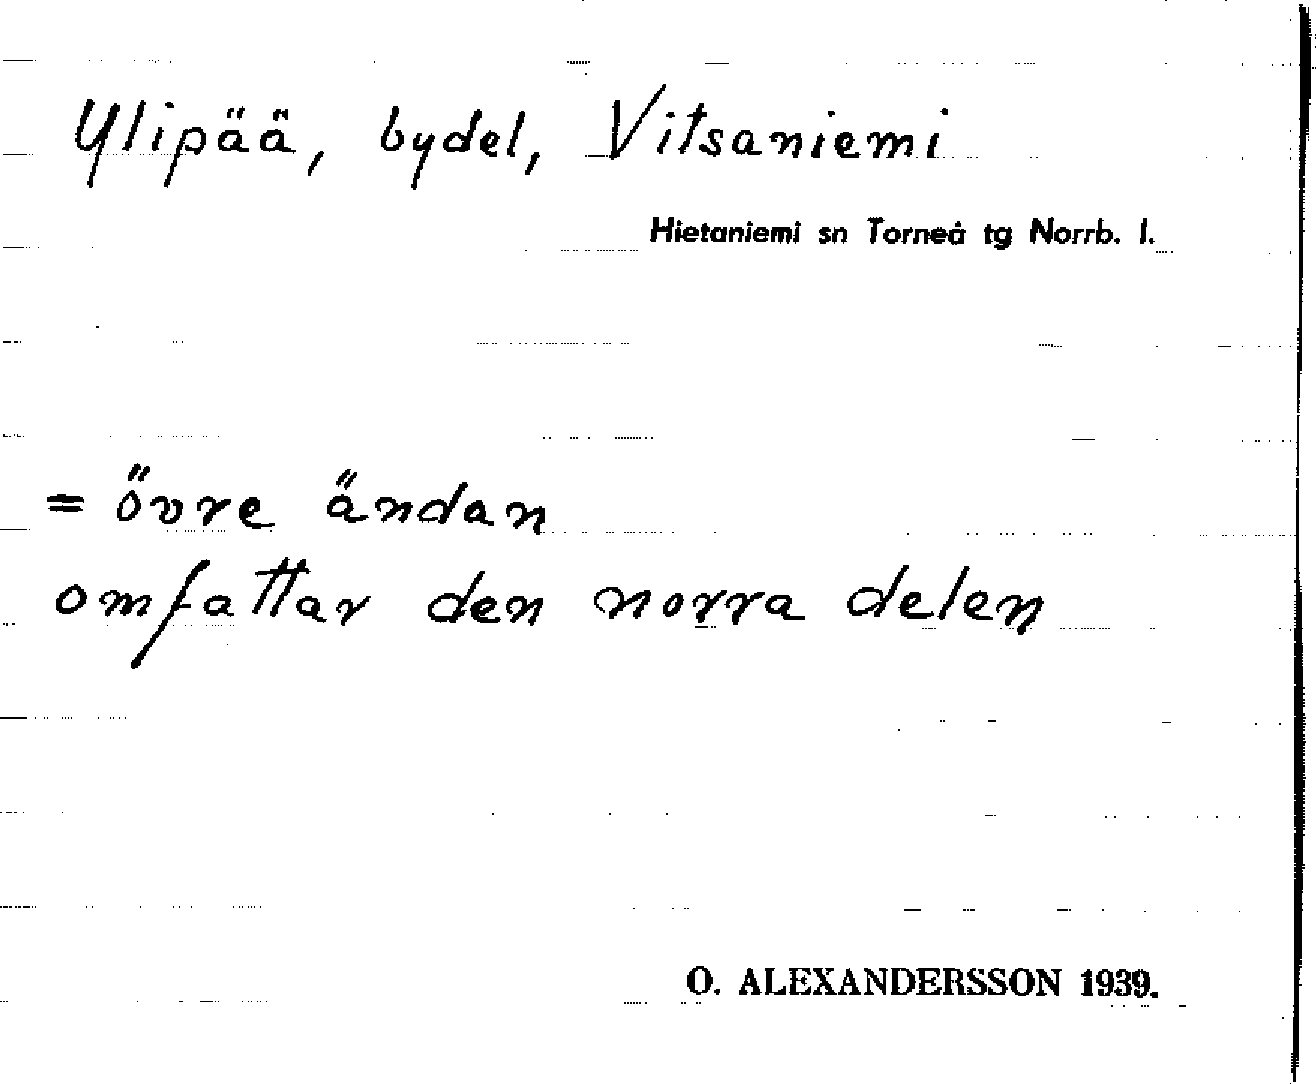 Ylipää, bydel, Vitsaniemi
Hietaniemi sn Torneå tg Norrb. l.
= övre ändan
omfattar den norra delen
O. ALEXANDERSSON 1939.